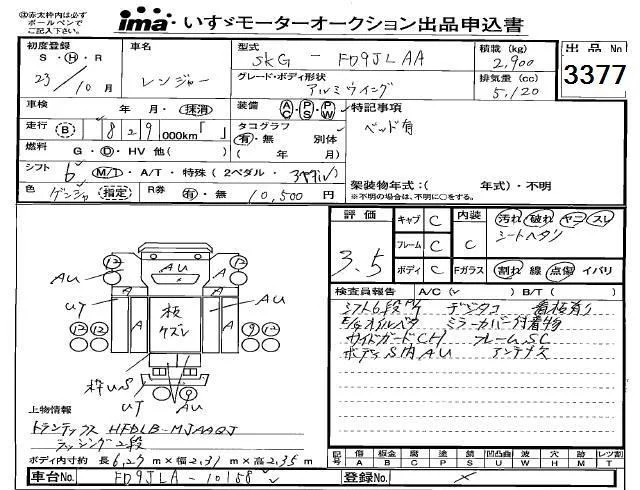 ㊟赤太枠内は必ず
ボールペンで
ご記入下さい。
ima いすゞモーターオークション出品申込書
初度登録 車名 型式 積載(kg) 出品No
S・H・R SKG - FD9JLAA 2,900
23/10月 レンジャー グレード・ボディ形状 排気量(cc) 3377
アルミウイング 5,120
車検 年 月・抹消 装備 AC・PS・PW 特記事項
走行 B 829 000km「 」 タコグラフ 有・無 別体 ベッド有
燃料 G・D・HV 他( ) ( 年 月)
シフト 6 M/T・A/T・特殊(2ペダル・ 架装物年式:( 年式)・不明
※不明の場合は、不明に○をする。
色 指定 R券 有・無 10,500円
評価 キャブ C 内装 汚れ 破れ ヤニ スレ
3.5 フレーム C C シートヘタリ
ボディ C Fガラス 割れ 線 点傷 イバリ
検査員報告 A/C(✓ ) B/T( )
シフト6段 デジタコ 看板有り
E/Gオイルベタ ミラーカバー付着物
サイドガードCH フレームSC
ボディS内AU アンテナ欠
12 12
AU AU AU
A A
UT A 板 A
ケズレ
12 12 9 12
枠US
9
UT AU
上物情報
トランテックス HFDLB-MJAAQJ
ラッシング2段
ボディ内寸約 長6,27m×幅2,31m×高2,35m
記号 傷 A 板金 B 腐 C 塗 P 錆 S 凹凸曲 U 波 W 穴 H 跡 M レツ割 T
車台No. FD9JLA-10158 登録No.